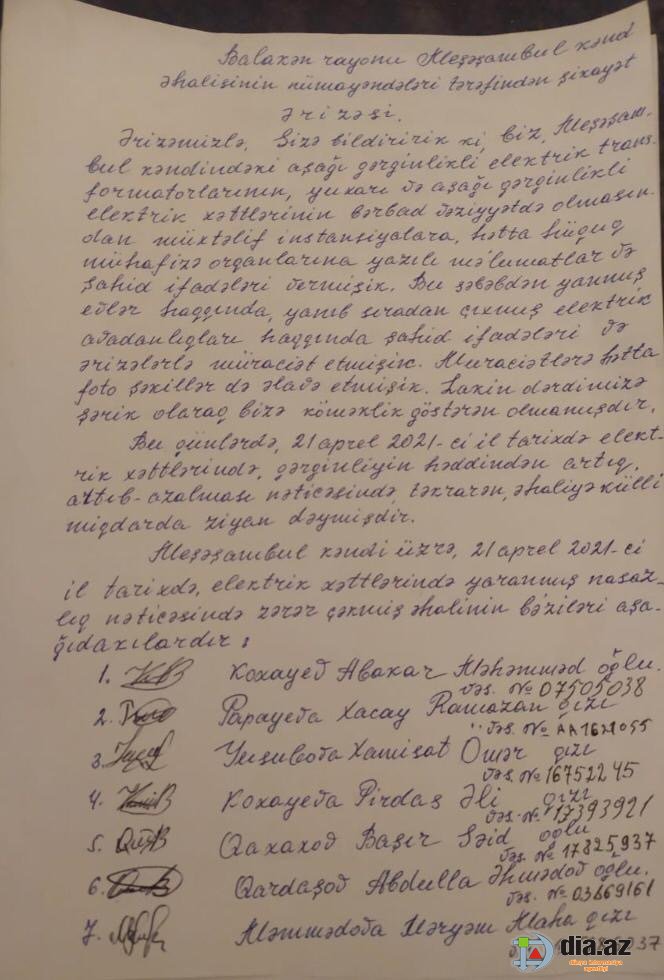 Balakən rayonu Meşəşambul kənd
əhalisinin nümayəndələri tərəfindən şikayət
ərizəsi.
Ərizəmizlə, Sizə bildiririk ki, biz, Meşəşam-
bul kəndindəki aşağı gərginlikli elektrik trans-
formatorlarının, yuxarı və aşağı gərginlikli
elektrik xəttlərinin bərbad vəziyyətdə olmasın-
dan müxtəlif instansiyalara, hətta hüquq
mühafizə organlarına yazılı məlumatlar və
şahid ifadələri vermişik. Bu səbəbdən yanmış
evlər haqqında, yanıb sıradan çıxmış elektrik
avadanlıqları haqqında şahid ifadələri və
ərizələrlə müraciət etmişik. Muraciətlərə hətta
foto şəkillər də əlavə etmişik. Lakin dərdimizə
şərik olaraq bizə köməklik göstərən olmamışdır.
Bu günlərdə, 21 aprel 2021-ci il tarixdə elekt-
rik xəttlərində, gərginliyin həddindən artıq,
artıb-azalması nəticəsində, təkrarən, əhaliyə külli
miqdarda ziyan dəymişdir.
Meşəşambul kəndi üzrə, 21 aprel 2021-ci
il tarixdə, elektrik xəttlərində yaranmış nasaz-
lıq nəticəsində zərər çəkmiş əhalinin bəziləri aşa-
ğıdakılardır:
1. Koxayev Abakar Məhəmməd oğlu.
vəs. № 07505038
2. Papayeva Xacay Ramazan qızı
vəs. № AA1621055
3. Yusubova Xamisat Ömər qızı
vəs. № 16752245
4. Koxayeva Pirdas Əli qızı
vəs. № 17393921
5. Qaxaxov Başir Səid oğlu
vəs. № 17825937
6. Qardaşov Abdulla Əhmədov oğlu.
vəs. № 03669161
7. Məmmədova Məryəm Maha qızı
037
dia.az
dünya informasiya
agentliyi